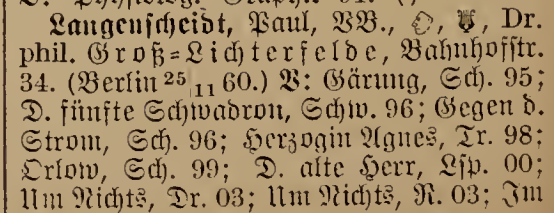 Langenscheidt, Paul, VB., Dr.
phil. Groß=Lichterfelde, Bahnhofstr.
34. (Berlin 25|11 60.) V: Gärung, Sch. 95;
D. fünfte Schwadron, Schw. 96; Gegen d.
Strom, Sch. 96; Herzogin Agnes, Tr. 98;
Orlow, Sch. 99; D. alte Herr, Lsp. 00;
Um Nichts, Dr. 03; Um Nichts, R. 03; Im